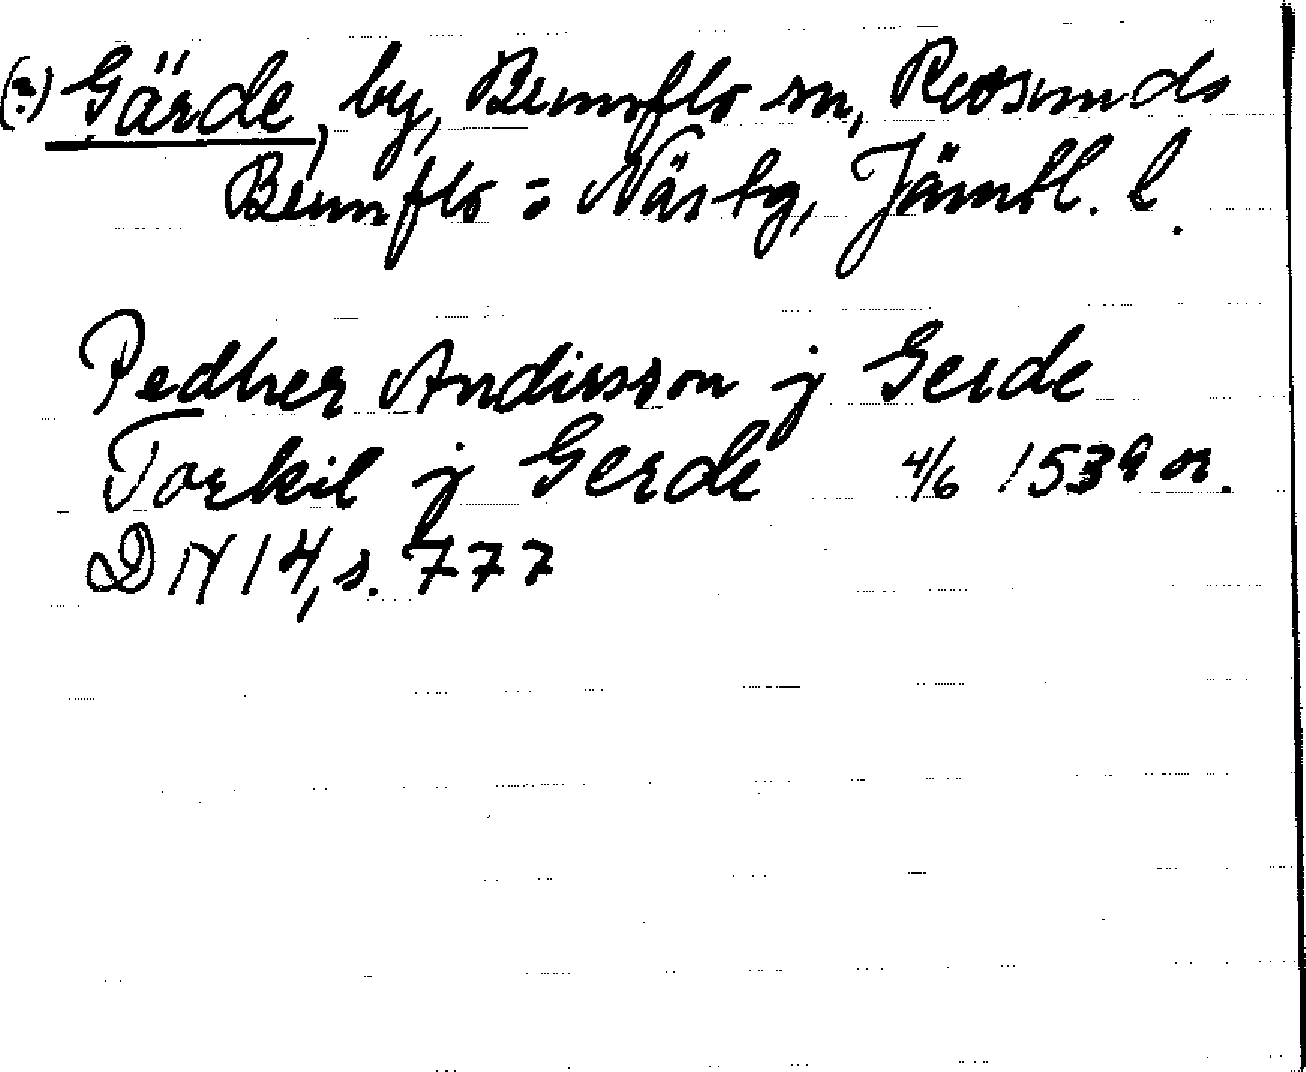 (?) Gärde, by, Brunflo sn, Revsunds
Brunflo o Näs tg, Jämtl. l.
Pedher Andirsson j Gerde
Torkil j Gerde 4/6 1539 or.
DN 14, s. 777